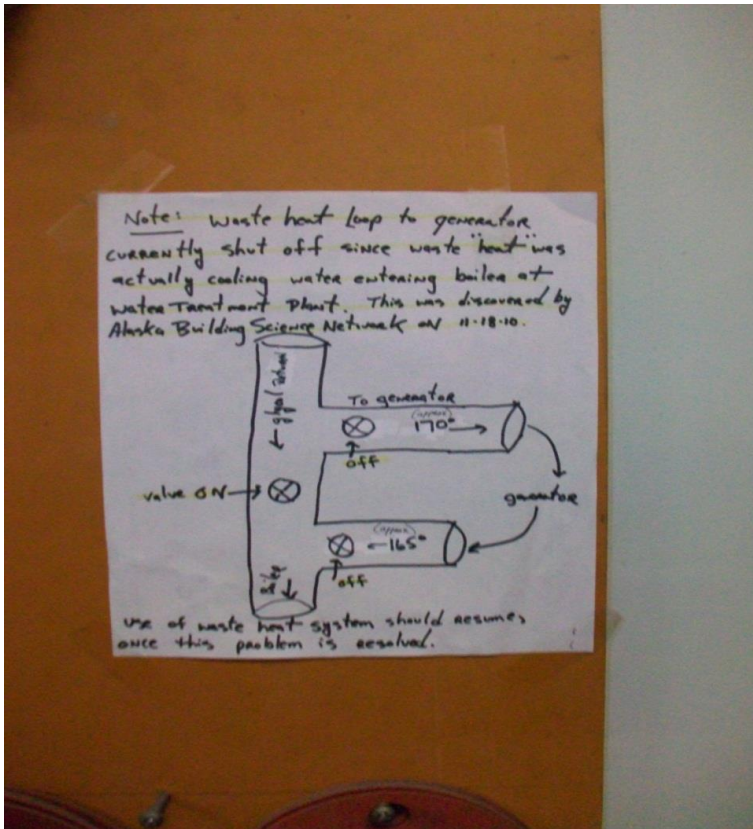 Note: Waste heat loop to generator
currently shut off since waste "heat" was
actually cooling water entering boiler at
Water Treatment Plant. This was discovered by
Alaska Building Science Network on 11-18-10.
← glycol return
To generator
(approx)
170° →
off
valve ON →
generator
(approx)
← 165°
off
Boiler ←
use of waste heat system should resume,
once this problem is resolved.